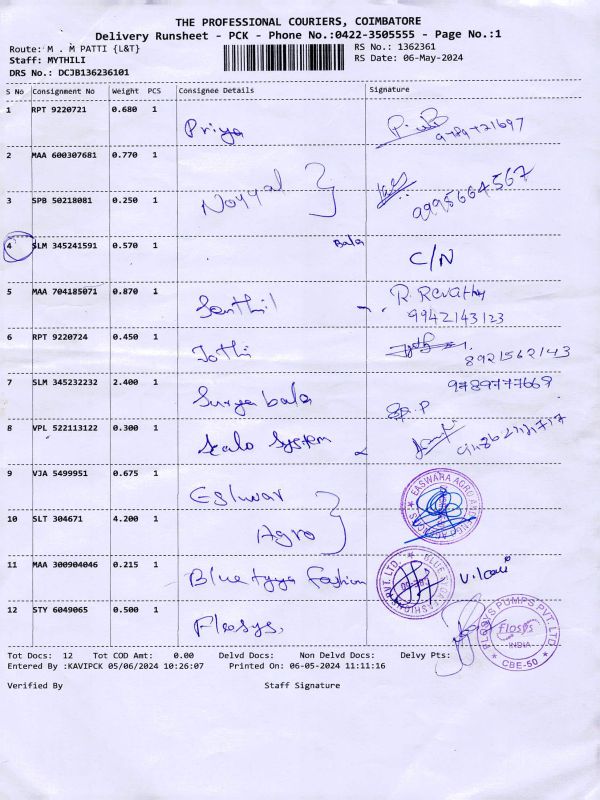 THE PROFESSIONAL COURIERS, COIMBATORE
Delivery Runsheet - PCK - Phone No.:0422-3505555 - Page No.:1
Route: M . M PATTI {L&T}
RS No.: 1362361
Staff: MYTHILI
RS Date: 06-May-2024
DRS No.: DCJB136236101
S No Consignment No Weight PCS Consignee Details Signature
1 RPT 9220721 0.680 1 Priya
2 MAA 600307681 0.770 1
Noyyal
9995664567
3 SPB 50218081 0.250 1
4 SLM 345241591 0.570 1 Bala C/N
5 MAA 704185071 0.870 1 Senthil R. Revathy
9942143123
6 RPT 9220724 0.450 1 Jothi
8921562143
7 SLM 345232232 2.400 1 Surya bala
9789777669
8 VPL 522113122 0.300 1 Scalo System
9 VJA 5499951 0.675 1 Eshwar
EASWARA AGRO
10 SLT 304671 4.200 1 Agro
11 MAA 300904046 0.215 1 Fashion
FASHIONS PVT. LTD.
12 STY 6049065 0.500 1 Flosys.
FLOSYS PUMPS PVT. LTD
Flosys
INDIA
CBE-50
Tot Docs: 12 Tot COD Amt: 0.00 Delvd Docs: Non Delvd Docs: Delvy Pts:
Entered By :KAVIPCK 05/06/2024 10:26:07 Printed On: 06-05-2024 11:11:16
Verified By Staff Signature